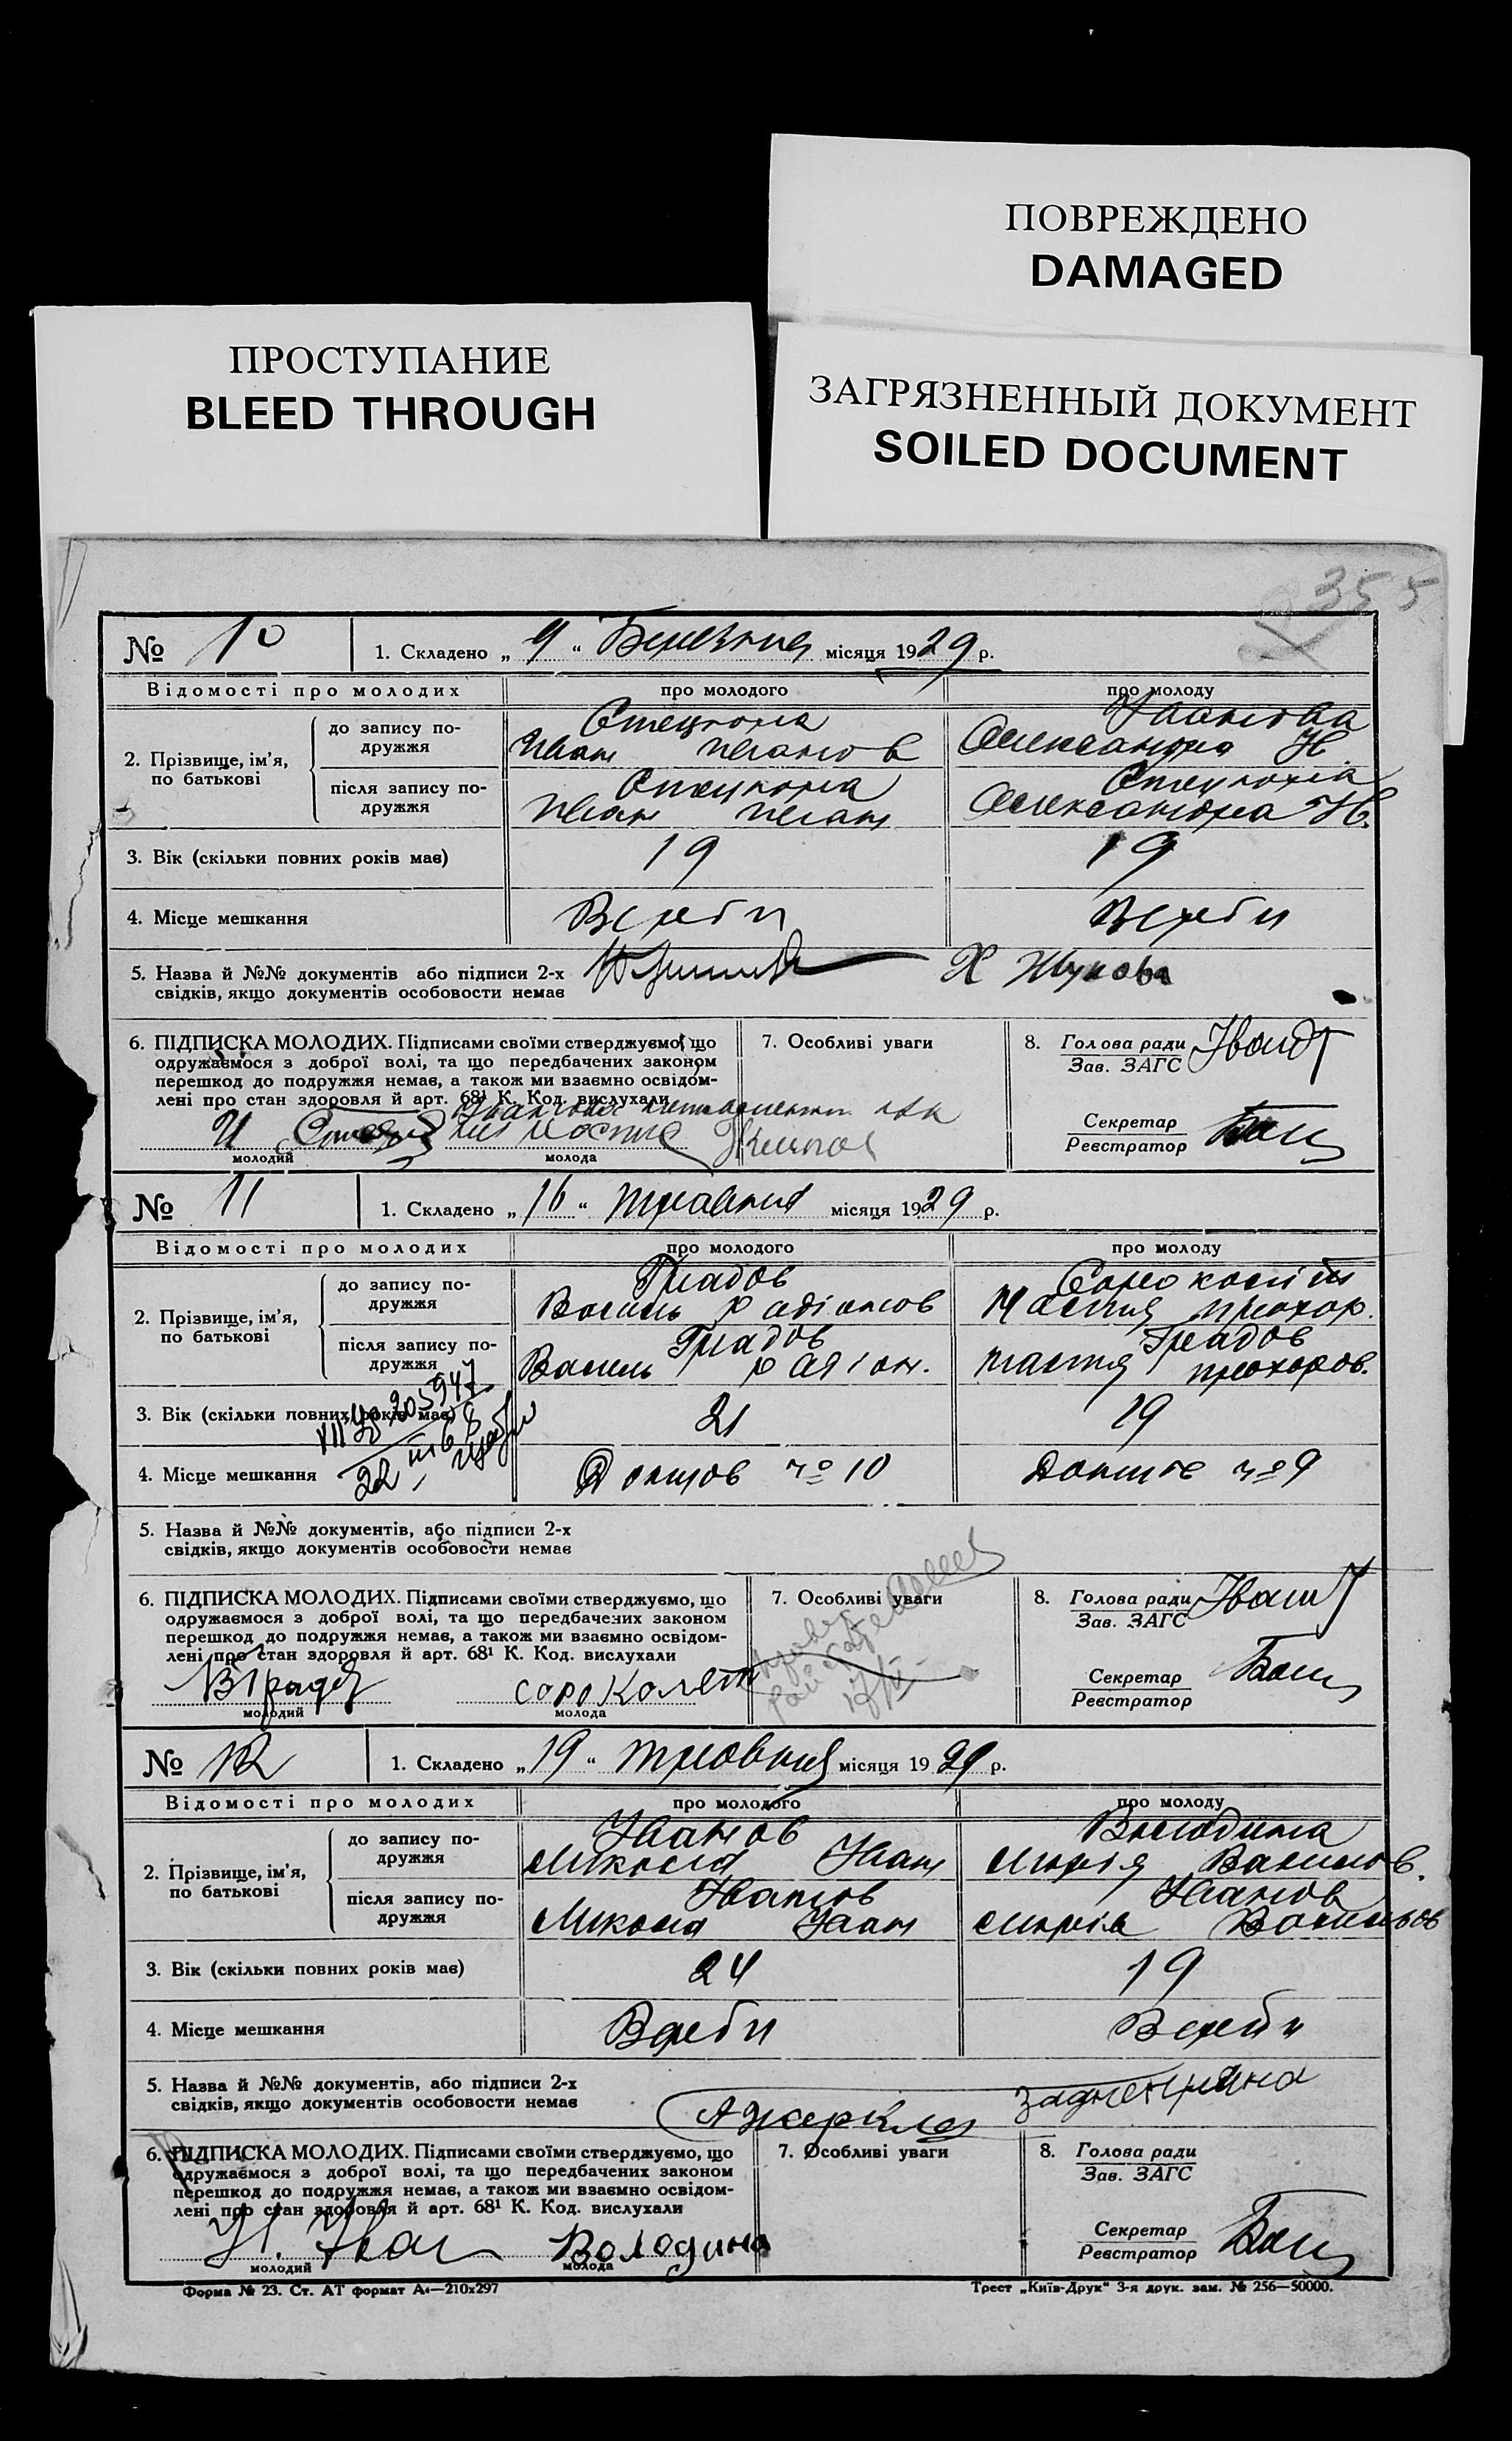 ПОВРЕЖДЕНО
DAMAGED
ПРОСТУПАНИЕ
BLEED THROUGH
ЗАГРЯЗНЕННЫЙ ДОКУМЕНТ
SOILED DOCUMENT
355
№ 10 1. Складено „ 9 “ Березня місяця 1929 р.
Відомості про молодих про молодого про молоду
2. Прізвище, ім’я, по батькові
до запису подружжя
Іванова
Иван Иванов Александра Н.
після запису подружжя
Иван Иван Александра Н.
3. Вік (скільки повних років має) 19 19
4. Місце мешкання Верби Верби
5. Назва й №№ документів або підписи 2-х Х Жукова
свідків, якщо документів особовости немає
6. ПІДПИСКА МОЛОДИХ. Підписами своїми стверджуємо, що
одружаємося з доброї волі, та що передбачених законом
перешкод до подружжя немає, а також ми взаємно освідом-
лені про стан здоровля й арт. 68¹ К. Код. вислухали
молодий молода
7. Особливі уваги
8. Голова ради
Зав. ЗАГС
Секретар
Реєстратор
№ 11 1. Складено „ 16 “ травня місяця 1929 р.
Відомості про молодих про молодого про молоду
2. Прізвище, ім’я, по батькові
до запису подружжя
Градов
Василь Радіонов Настя Прохор.
після запису подружжя
Градов Градов
Василь Радіон. Настя Прохоров.
3. Вік (скільки повних років має) 21 19
4. Місце мешкання №10 №9
5. Назва й №№ документів, або підписи 2-х
свідків, якщо документів особовости немає
6. ПІДПИСКА МОЛОДИХ. Підписами своїми стверджуємо, що
одружаємося з доброї волі, та що передбачених законом
перешкод до подружжя немає, а також ми взаємно освідом-
лені про стан здоровля й арт. 68¹ К. Код. вислухали
молодий молода
7. Особливі уваги
8. Голова ради
Зав. ЗАГС
Секретар
Реєстратор
№ 12 1. Складено „ 19 “ травня місяця 1929 р.
Відомості про молодих про молодого про молоду
2. Прізвище, ім’я, по батькові
до запису подружжя
Іванов Володина
Микола Іван Марія Васильов.
після запису подружжя
Іванов Іванов
Микола Іван Марія Васильов
3. Вік (скільки повних років має) 24 19
4. Місце мешкання Верби Верби
5. Назва й №№ документів, або підписи 2-х
свідків, якщо документів особовости немає
6. ПІДПИСКА МОЛОДИХ. Підписами своїми стверджуємо, що
одружаємося з доброї волі, та що передбачених законом
перешкод до подружжя немає, а також ми взаємно освідом-
лені про стан здоровля й арт. 68¹ К. Код. вислухали
Володина
молодий молода
7. Особливі уваги
8. Голова ради
Зав. ЗАГС
Секретар
Реєстратор
Форма № 23. Ст. АТ формат А₄—210х297 Трест „Київ-Друк“ 3-я друк. зам. № 256—50000.